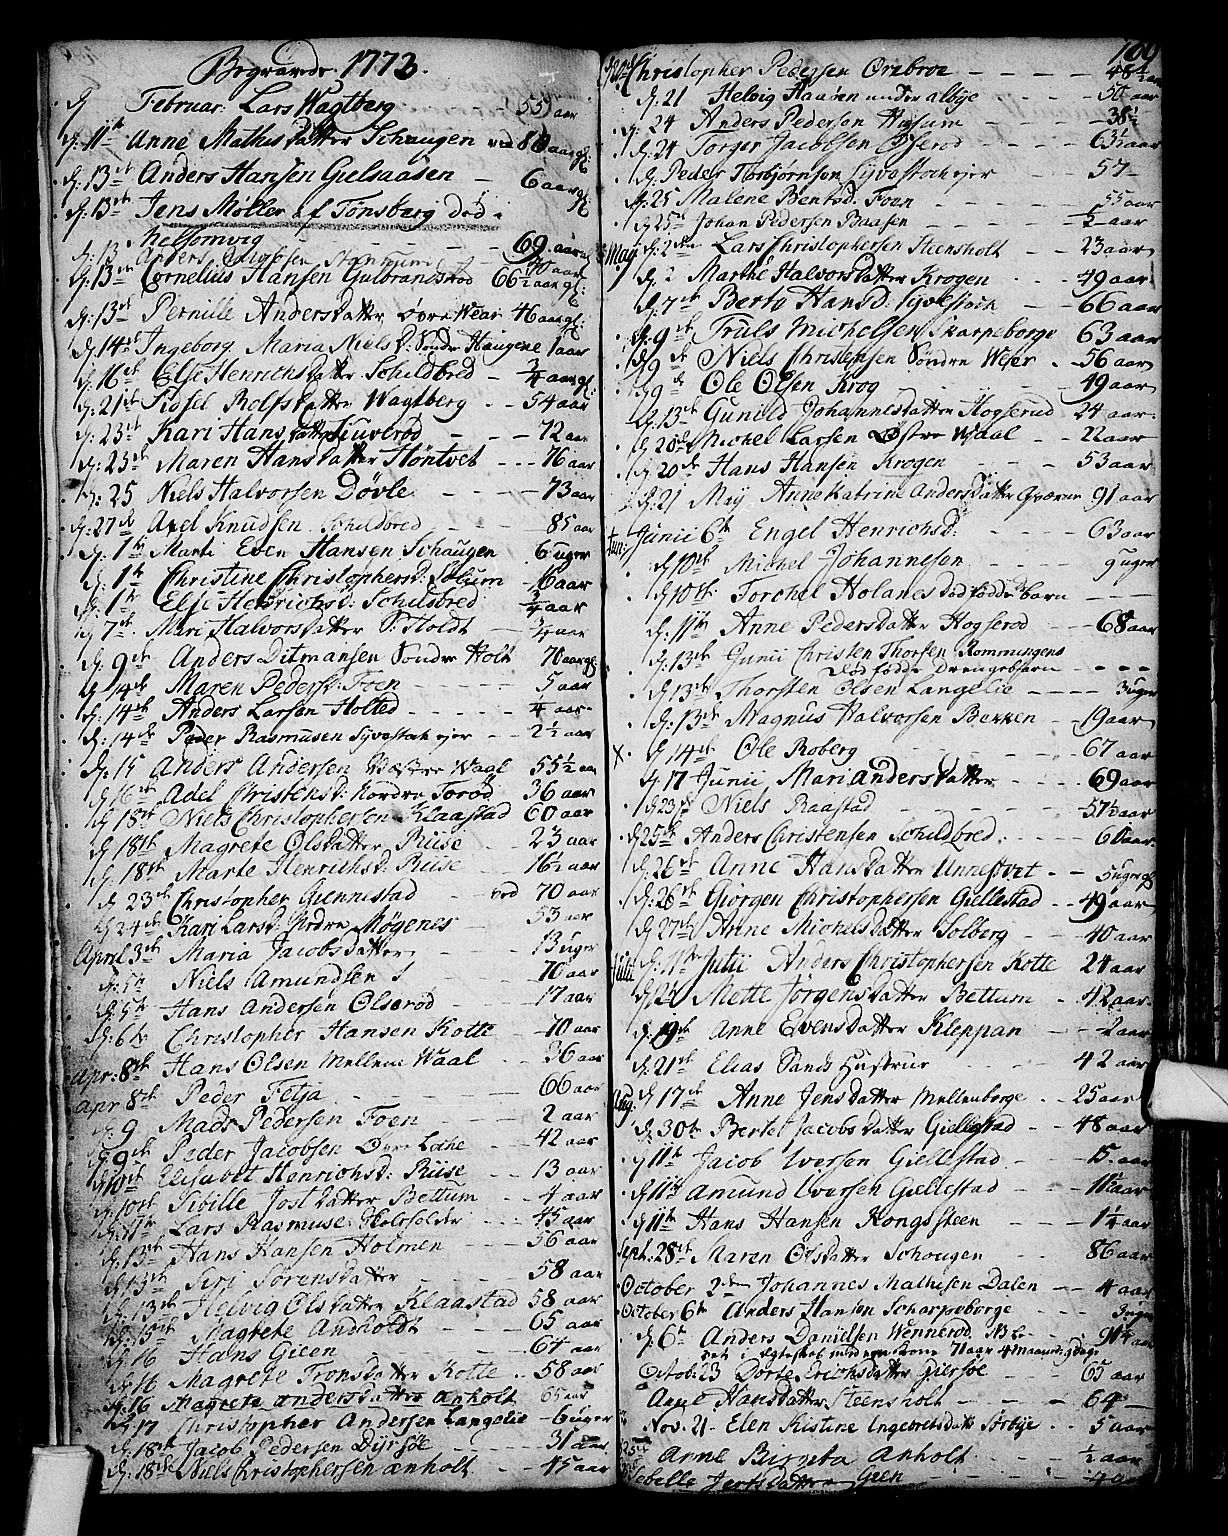 Begravede 1773.
d. 9 Februar: Lars Wagtberg - - 55 aar
d: 11te Anne Mathisdatter Schaugen ved 80 aar gl:
d: 13de Anders Hansen Gulsaasen - - 6 aar gl:
d: 13de Jens Møller af Tønsberg død i
Melsomvig - - - 69 aar
d: 13 Anders
d: 13de Cornelius Hansen Gulbrandsrød 66½ aar gl:
d: 13de Pernille Andersdatter øvre Wear 46 aar gl:
d: 14de Ingeborg Maria Niels D: Søndre Haugene 1 aar
d: 16de Else Henrichsdatter Schildbred - ¾ aar gl:
d: 21de Sidsel Rolfsdatter Wagtberg - - 54 aar
d: 23de Kari Hansdatter - - - 72 aar
d: 23de Maren Hansdatter Høntvet - - - 76 aar
d: 25 Niels Halvorsen Døvle - - - 73 aar
d: 27de Axel Knudsen Schildbred - - 85 aar
d: 1te Marti Even Hansen Schaugen 6 uger
d: 1te Christine Christophersd: Solum - 6 aar
d: 1te Else Henrichsd: Schildbred - ¾ aar
d 7de Mari Halvorsdatter S: Holdt - ¼ aar
d: 9de Anders Ditmansen Søndre Holt 70 aar gl
d 14de Maren Pedersd: Foen - - - 5 aar
d: 14de Anders Larsen Holted - - - 4 aar
d: 14de Peder Rasmusen - - 2½ aar
d: 15 Anders Andersen Wæstre Waal 55½ aar
d 16de Adel Christensd: Nordre Torød 36 aar
d 18de Niels Christophersen Klaastad 60 aar
d 18de Magrete Olsdatter Riise - - 23 aar
d: 18de Marte Henrichsd: Riise - - 16½ aar
d 23de Christopher Giennestad - ved 70 aar
d 24de Kari Larsd: Nordre Møgenes - 53 aar
April 3de Maria Jacobsdatter - - 13 uger
d: 5te Niels Amundsen - - - 70 aar
d: 5te Hans Andersen Olserød - - 17 aar
d: 6te Christopher Hansen Kotte - 70 aar
Apr: 8de Hans Olsen Mellem Waal - - 36 aar
Apr 8de Peder Fetja - - - 66 aar
d: 9 Mads Pedersen Foen - - 2 aar
d 9de Peder Jacobsen Øvre - - 42 aar
d 10de Elisabet Henrichsd: Riise - - 13 aar
d 10de Sibille Jostdatter Bettum - - 4 aar
d: 11te Lars Rasmuse - - - 45 aar
d: 13de Hans Hansen Holmen - - - 56 aar
d 13de Siri Sørensdatter - - - 58 aar
d. 13de Helvig Olsdatter Klaastad 58 aar
d: 15de Magrete Andholdt - - - 65 aar
d: 16 Hans Gieen - - - 64 -
d 16 Magrete Tronsdatter Kotte - - 58 aar
d: 16 Magrete andersdatter anholt - 65 aar
d: 17 Christopher Andersen Langelie - 6 uger
d: 18de Jacob Pedersen Dyrsøe - - 31 aar
d: 18de Niels Christophersen anholt - - 45 aar
Christopher Pedersen Örebroe - - - 48½ aar
d: 21 Helvig Hansen - - 50 aar
d: 24 Anders Pedersen Husum - - - 38½
d: 24 Torger Jacobsen - - - 63½ aar
d. Peder Torbjørnsen - - 57 -
d: 25 Malene Bentsd: Foen - - - 55 aar
d 25de Johan Pedersen Baasen - - ½ aar
May d: 2den Lars Christophersen Steensholt - 23 aar
d: 2 Marthe Halvorsdatter Krogen - - 49 aar
d: 7de Berto Hansd: - - 66 aar
d: 9de Truls Michelsen Skarpeborge 63 aar
d 9de Niels Christensen Søndre Weer - 56 aar
d 9de Ole Olsen Krog - - - 49 aar
d: 13de Gunild Johannesdatter Hogserud - 24 aar
d: 20de Michel Larsen Østre Waal - - 22 aar
d: 20de Hans Hansen Krogen - - - 53 aar
d: 21 May Anne Katrine Andersdatter Qværne 91 aar
Jun: Junii 6te Engel Henrichsd: - - - 63 aar
d 10de Michel Johannesen - - 9 uger
d 10de Torchel Holanes dødfødde barn - - -
d: 11te Anne Pedersdatter Hogserød - - 68 aar
d. 13de Junii Christen Thorsen Rommungens
død fødde Drengebarn - - -
d: 13de Thorsten Olsen Langelie - - - 3 uger
d: 13de Magnus Halvorsen Bekken - - 19 aar
X d 14de Ole Roberg - - - 67 aar
d 17 Junii Mari andersdatter - - 69 aar
d 23de Niels Raastad - - - 57½ aar
d 25de Anders Christensen Schildbred - - 60 aar
d: 26de Anne Hansdatter Unneqvet - - 5 uger gl
d: 26de Giorgen Christophersen Giellestad - - 49 aar
d 27de Anne Michelsdatter Solberg - - 40 aar
Julii d: 11te Julii Anders Christophersen Kotte 24 aar
d 12te Mette Jörgensdatter Bettum - 42 aar
d: 19de Anne Evensdatter Kleppan - - 2 aar
d: 21de Elias Sands Hustrue - - 42 aar
Aug: d 17de Anne Jensdatter Mellenborge - - 25 aar
d: 30te Bertel Jacobsdatter Giellestad - - 48 aar
d 11te Jacob Iversen Giellestad - - 15 aar
d 11te Amund Iversen Giellestad - - 11½ aar
d 11te Hans Hansen Kongssteen - - 1¼ aar
Sept: 28de Maren Olsdatter Schougen - - 86 aar
October 2den Johannes Mathisen Dalen - 4 aar
October 6te Anders Hansen Scharpeborge - - 3 uger
d: 6te Anders Danielsen Wennerød. NB - - 91¼ aar
været i ægteskab med een Kone 71 aar 4 maaneder 9 dage
Octob: 23 Dorte Erichsdatter Diersøe - - 65 aar
Anne Hansdatter Steensholt - - 64 -
Nov. 21 - Elen Kistine Ingebretsdatter Sørbye - - 5 aar
Anne Birgeta Anholt - - ½ aar
Sebelle Jertsdatter Geen - - - 40